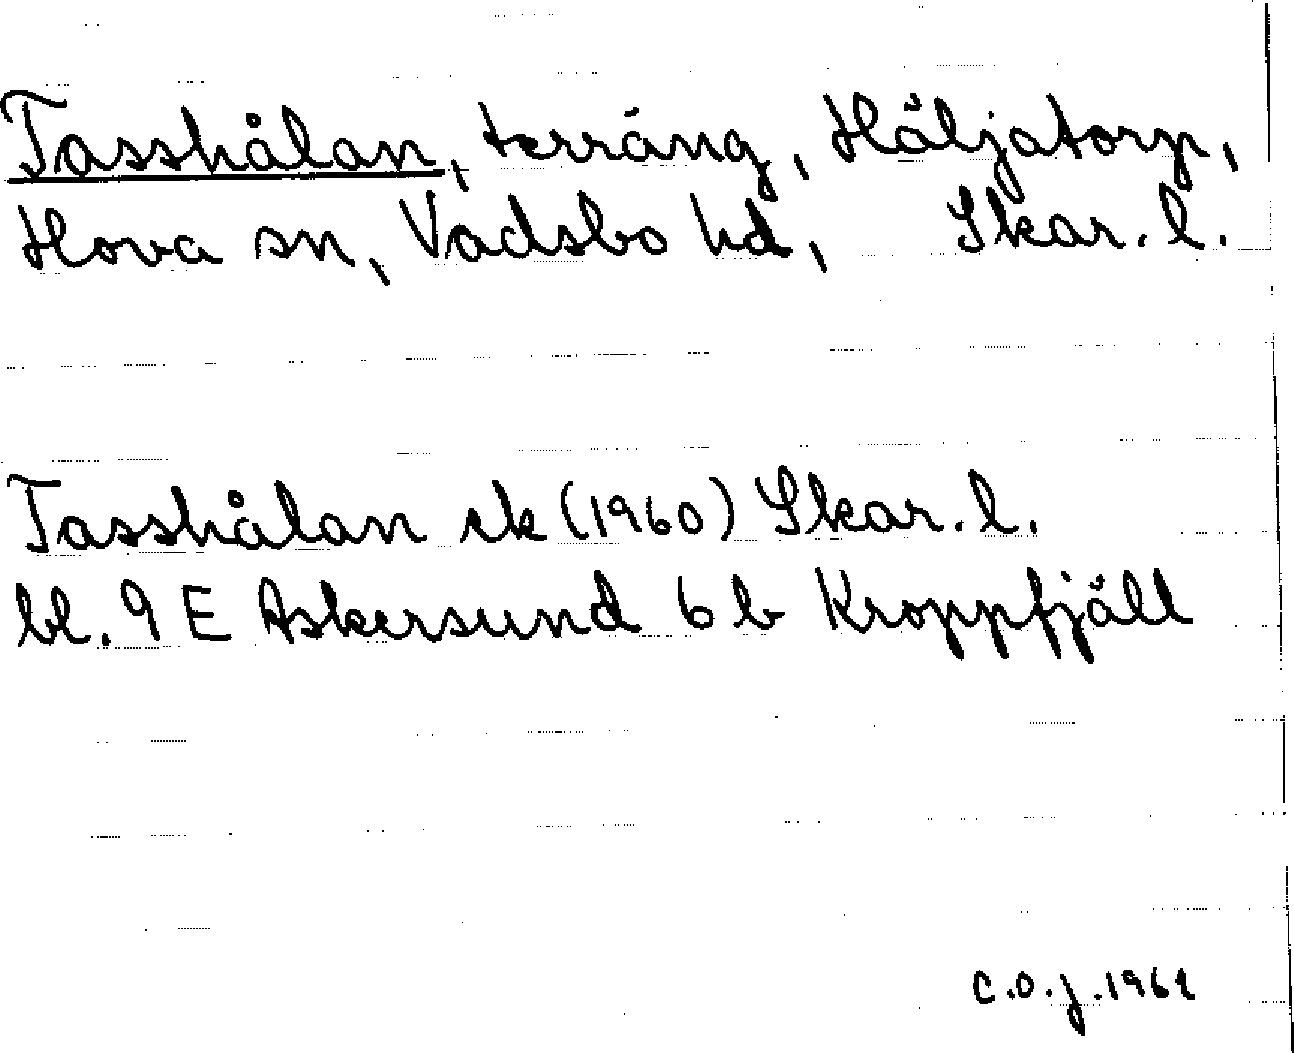 Tasshålan, terräng, Häljatorp,
Hova sn, Vadsbo hd, Skar. l.
Tasshålan ek (1960) Skar. l.
bl. 9 E Askersund 6 b Kroppfjäll
C.O.J. 1961